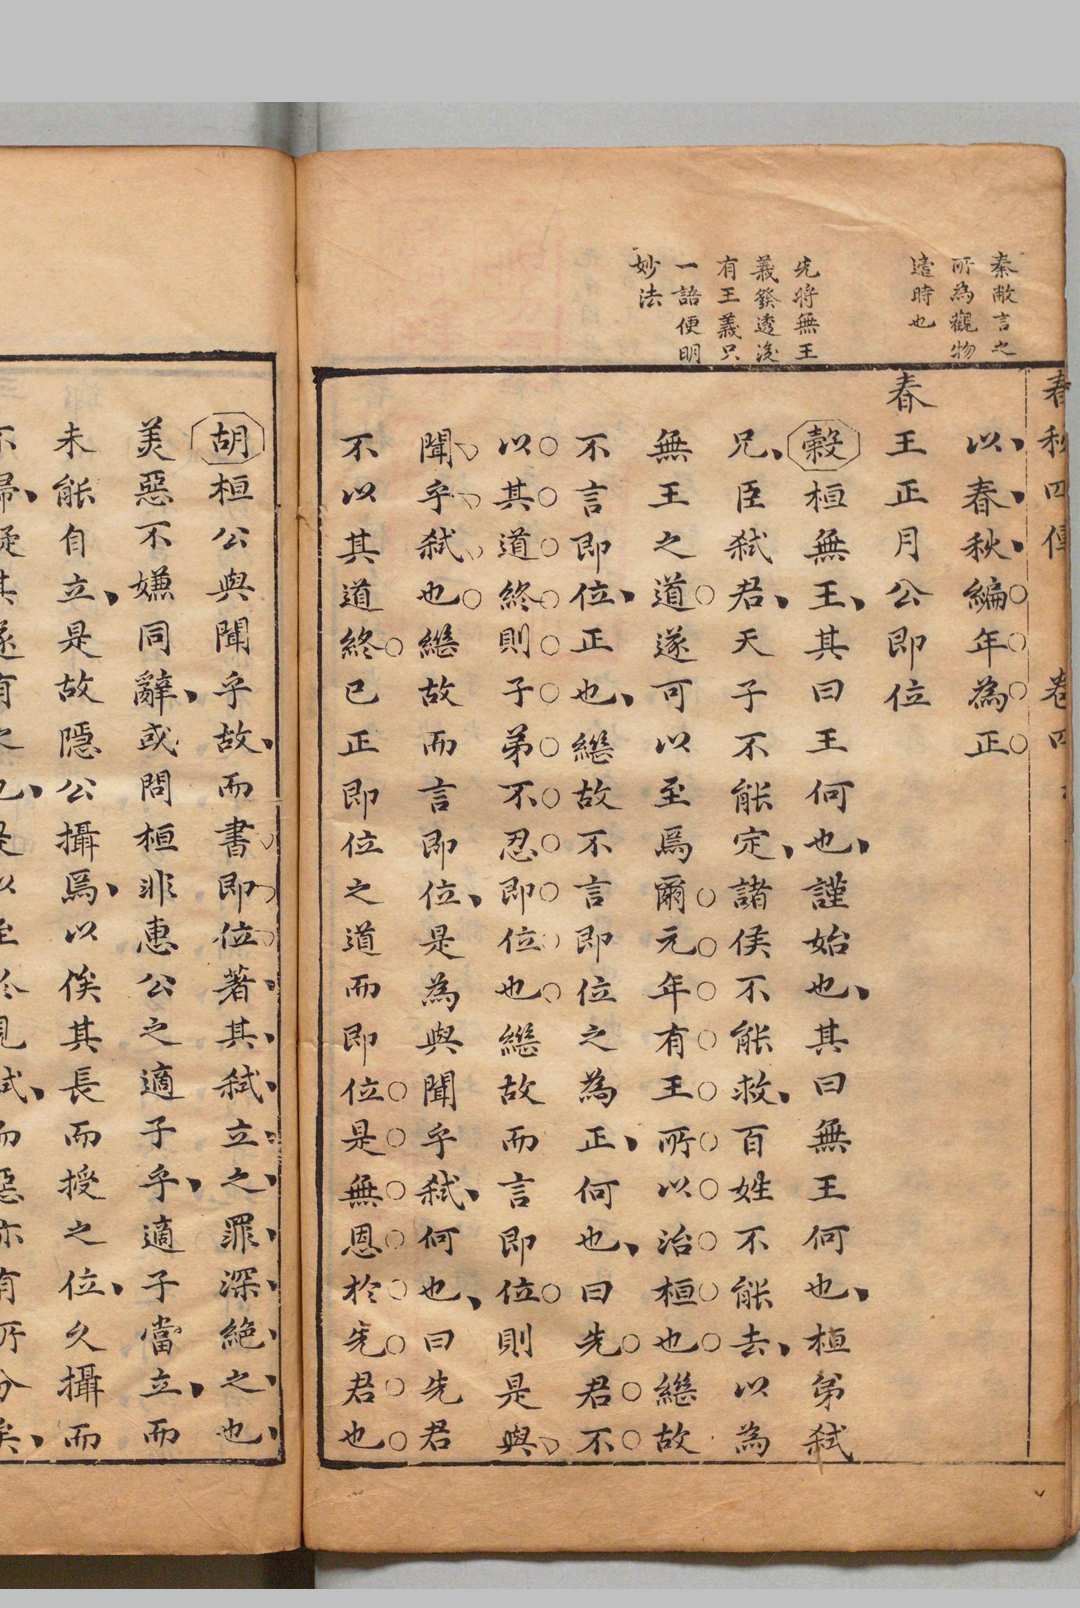 秦敝言之
所為觀物
遠時也
先將無王
義發透後
有王義只
一語便明
妙法
春秋四傳 卷四
以春秋編年為正
春王正月公即位
穀桓無王其曰王何也謹始也其曰無王何也桓弟弒
兄臣弒君天子不能定諸侯不能救百姓不能去以為
無王之道遂可以至焉爾元年有王所以治桓也繼故
不言即位正也繼故不言即位之為正何也曰先君不
以其道終則子弟不忍即位也繼故而言即位則是與
聞乎弒也繼故而言即位是為與聞乎弒何也曰先君
不以其道終已正即位之道而即位是無恩於先君也
胡桓公與聞乎故而書即位著其弒立之罪深絕之也
美惡不嫌同辭或問桓非惠公之適子乎適子當立而
未能自立是故隱公攝焉以俟其長而授之位久攝而
不歸疑其遂有之也是以至於見弒而惡亦有所分矣